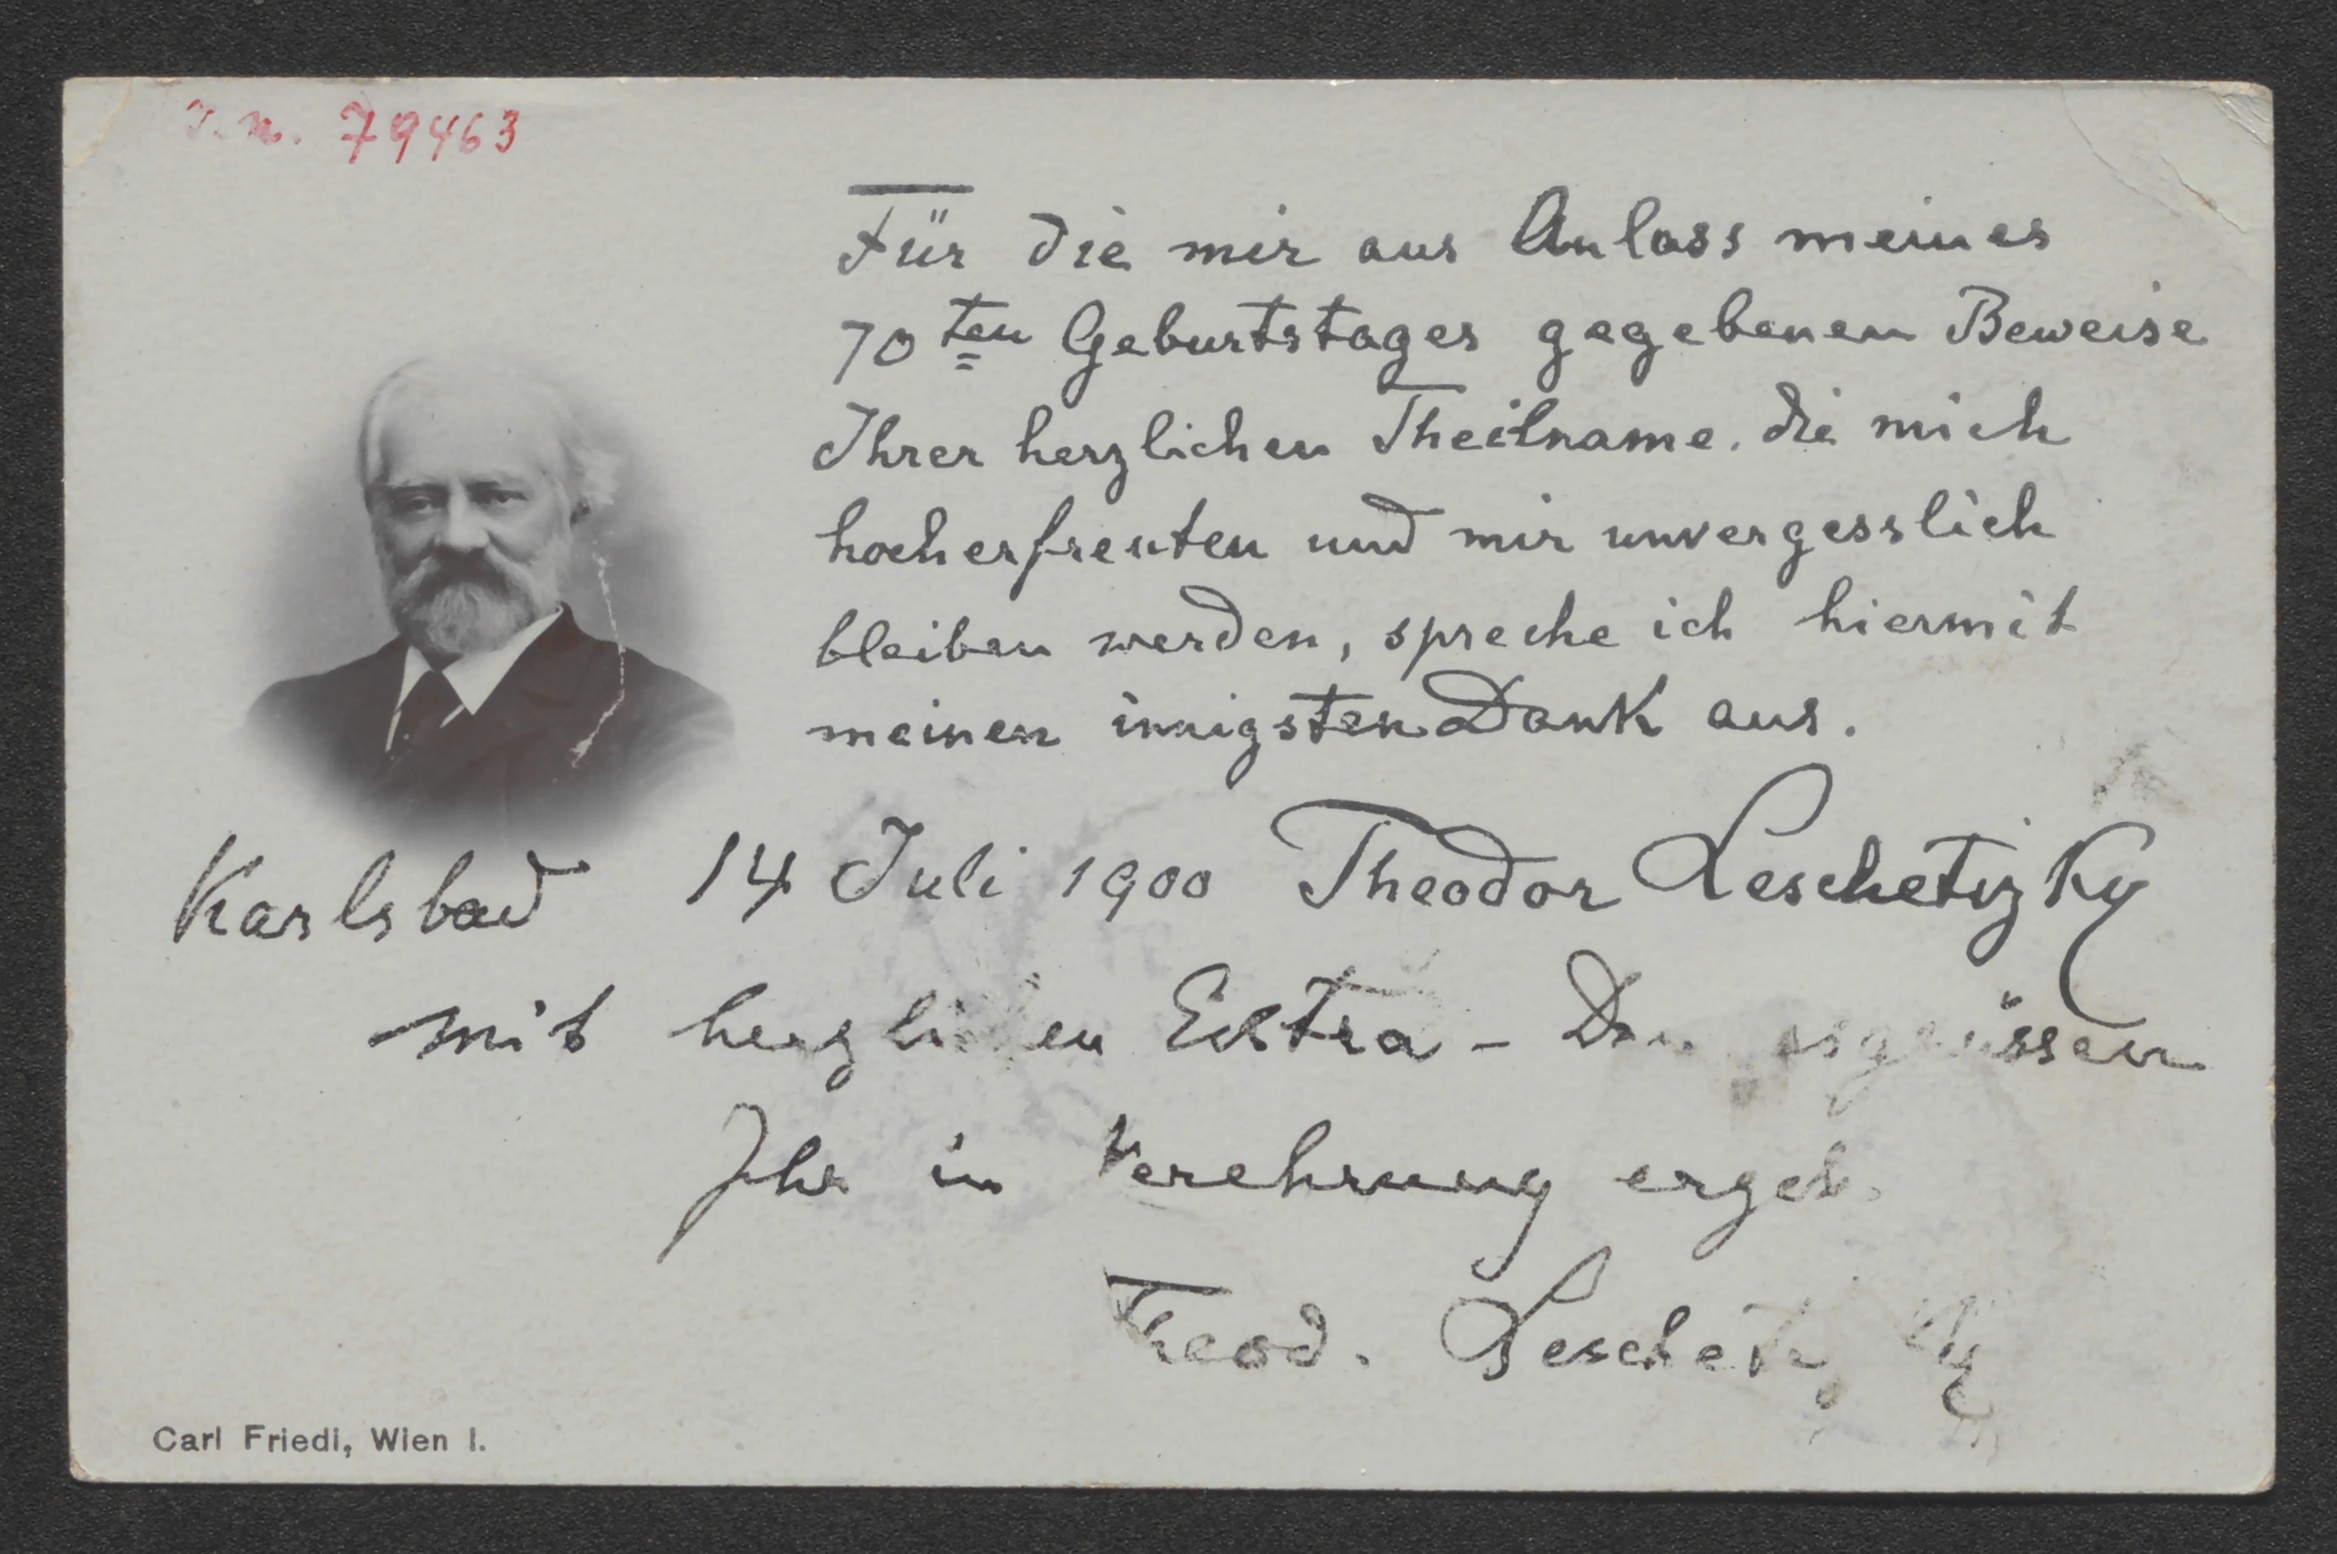 J. N. 79463
Für die mir aus Anlass meines
70ten Geburtstages gegebenen Beweise
Ihrer herzlichen Theilname. die mich
hocherfreuten und mir unvergesslich
bleiben werden, spreche ich hiermit
meinen innigsten Dank aus.
Karlsbad 14 Juli 1900 Theodor Leschetizky
mit herzlichen Extra-
Ihr in Verehrung ergeb.
Theod. Leschetizky
Carl Friedl, Wien I.